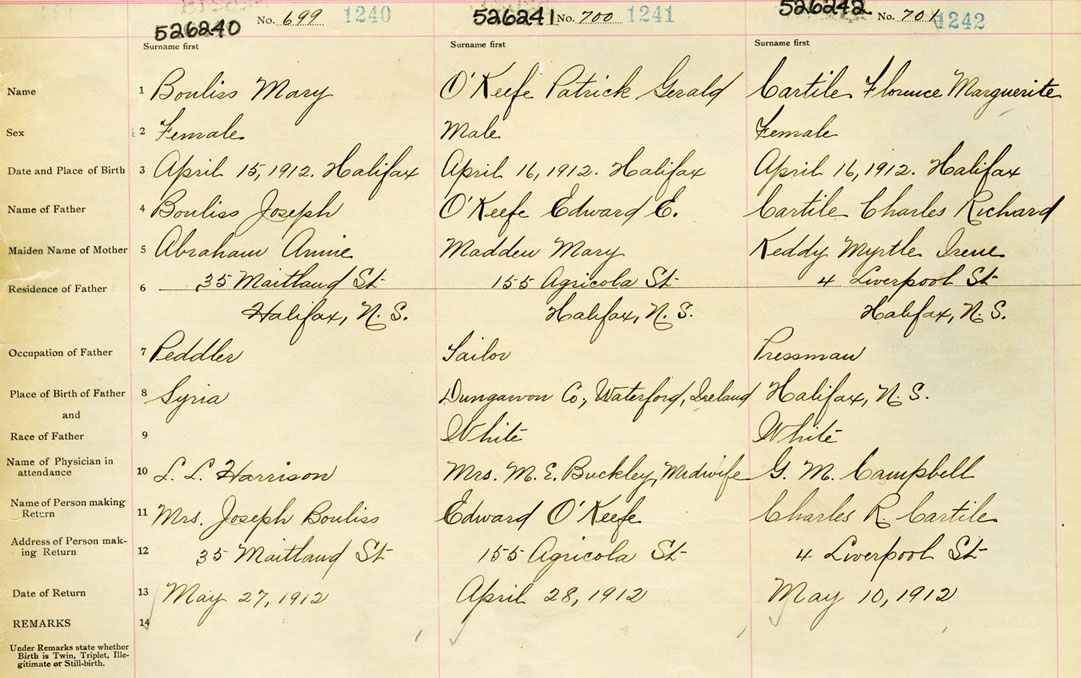 526240 No. 699 1240 526241 No. 700 1241 526242 No. 701 1242
Surname first Surname first Surname first
Name 1 Bouliss Mary O'Keefe Patrick Gerald Cartile Florence Marguerite
Sex 2 Female Male Female
Date and Place of Birth 3 April 15, 1912. Halifax April 16, 1912. Halifax April 16, 1912. Halifax
Name of Father 4 Bouliss Joseph O'Keefe Edward E. Cartile Charles Richard
Maiden Name of Mother 5 Abraham Annie Madden Mary Keddy Myrtle Irene
Residence of Father 6 35 Maitland St 155 Agricola St 4 Liverpool St
Halifax, N.S. Halifax, N.S. Halifax, N.S.
Occupation of Father 7 Peddler Sailor Pressman
Place of Birth of Father 8 Syria Dungarvon Co., Waterford, Ireland Halifax, N.S.
and
Race of Father 9 White White
Name of Physician in attendance 10 L. L. Harrison Mrs. M. E. Buckley, Midwife G. M. Campbell
Name of Person making Return 11 Mrs. Joseph Bouliss Edward O'Keefe Charles R. Cartile
Address of Person making Return 12 35 Maitland St 155 Agricola St 4 Liverpool St
Date of Return 13 May 27, 1912 April 28, 1912 May 10, 1912
REMARKS 14
Under Remarks state whether
Birth is Twin, Triplet, Ille-
gitimate or Still-birth.